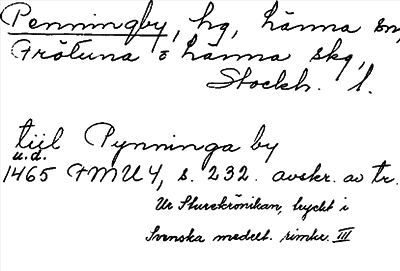 Penningby, hg, Länna sn,
Frötuna o Länna skg,
Stockh. l.
tiil Pynninga by
u.d.
1465 FMU 4, s. 232. avskr. av tr.
Ur Sturekrönikan, tryckt i
Svenska medelt. rimkr. III